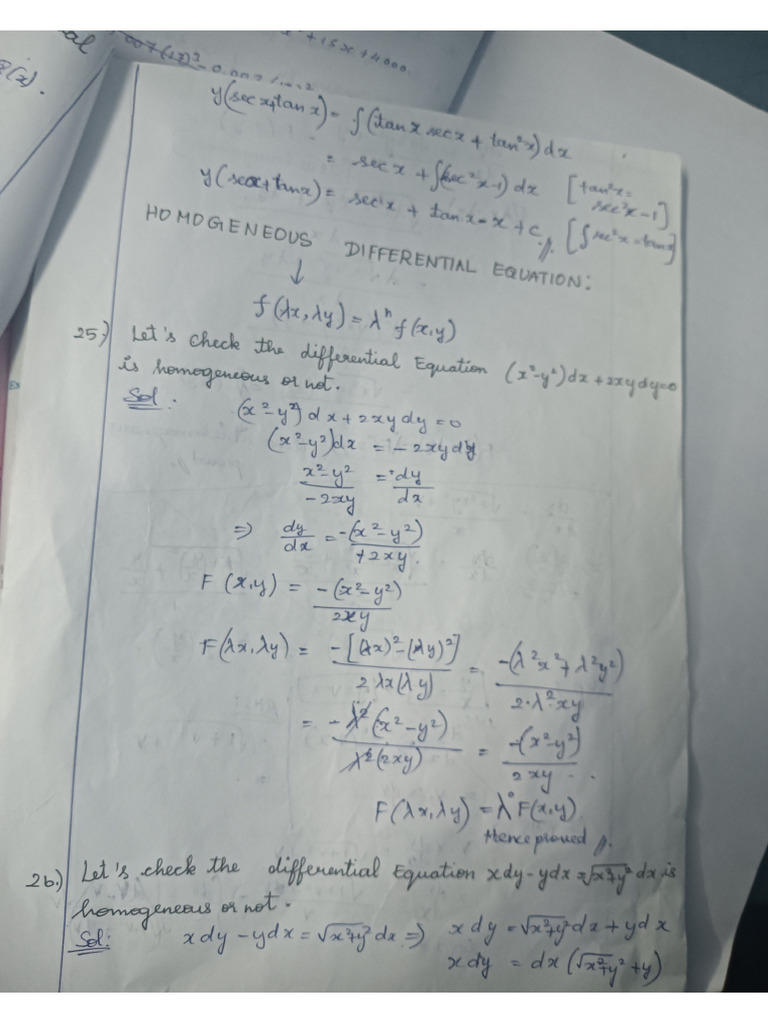 al
8(x).
+15x+4000
y(sec x+tan x) = ∫(tan x sec x + tan²x)dx
= sec x + ∫(sec²x-1)dx [tan²x = sec²x-1]
y(secx+tanx) = sec x + tan x - x + C//. [∫sec²x = tanx]
HOMOGENEOUS DIFFERENTIAL EQUATION:
↓
f(λx,λy) = λⁿ f(x,y)
25.) Let's check the differential Equation (x²-y²)dx+2xydy=0
is homogeneous or not.
Sol: (x²-y²)dx+2xydy=0
(x²-y²)dx = -2xydy
x²-y²/-2xy = dy/dx
⇒ dy/dx = -(x²-y²)/+2xy.
F(x,y) = -(x²-y²)/2xy
F(λx,λy) = -[(λx)²-(λy)²]/2λx(λy) = -(λ²x²+λ²y²)/2·λ²·xy
= -λ²(x²-y²)/λ²(2xy) = -(x²-y²)/2xy.
F(λx,λy) = λ⁰F(x,y)
Hence proved //.
26.) Let's check the differential Equation xdy-ydx=√x²+y² dx is
homogeneous or not.
Sol: xdy-ydx=√x²+y² dx ⇒ xdy=√x²+y² dx+ydx
xdy = dx(√x²+y²+y)